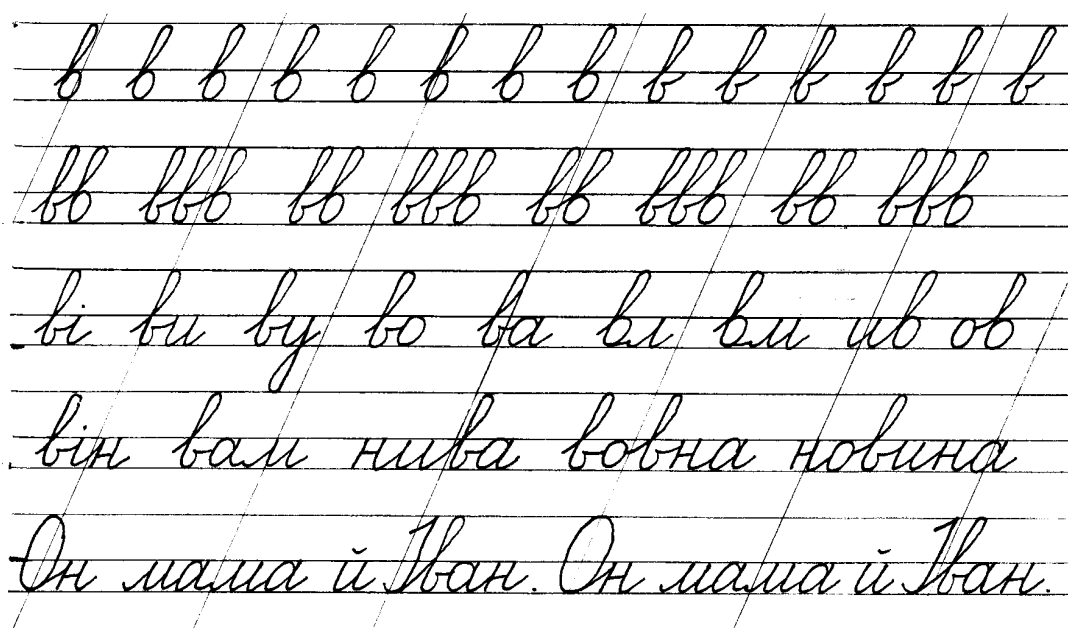 в в в в в в в в в в в в в в
вв ввв вв ввв вв ввв вв ввв
ві ви ву во ва вл вм ив ов
він вам нива вовна новина
Он мама й Іван. Он мама й Іван.